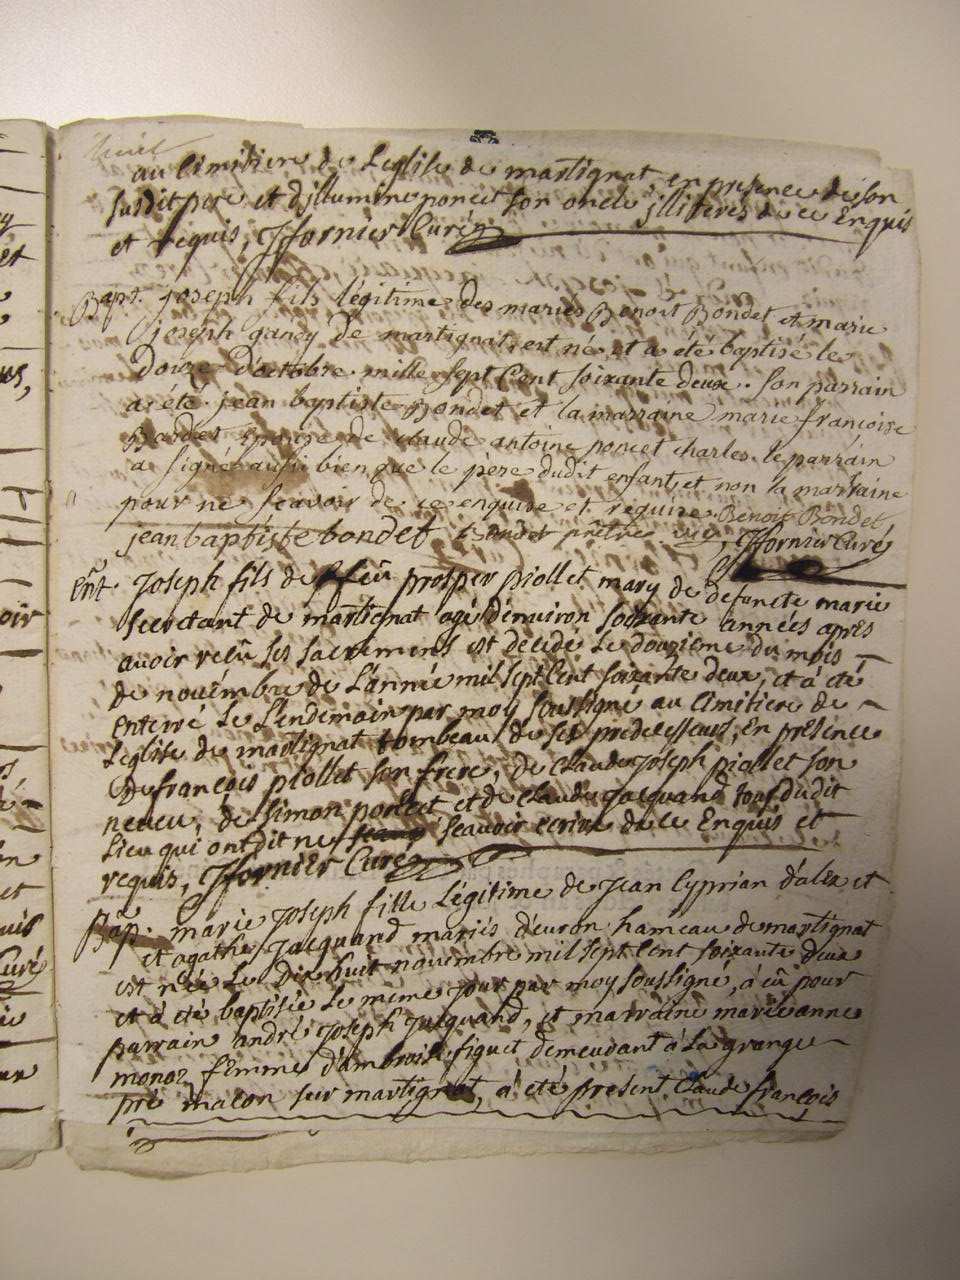 au Cimitiere de Leglise de martignat en presence de son
susdit pere et d'illumine poncet son oncle jlliteres de ce Enquis
et requis, Jfornier Curé
Bapt. joseph fils légitime des mariés Benoit Bondet et marie
joseph gancy de martignat, est né et a eté baptisé le
douze d'octobre mille sept Cent soixante deux. Son parrain
a été jean baptiste Bondet et la marraine marie francoise
Bardet epouse de claude antoine poncet charles. le parrain
a signé aussi bien que le père dudit enfant, et non la marraine
pour ne sçavoir de ce enquise et requise. Benoit Bondet
jean baptiste bondet Bondet prêtre Jfornier Curé
Ent. Joseph fils de feû prosper piollet mary de defuncte marie
de martignat agé d'enuiron soixante années apres
avoir reçû ses sacrements est decedé Le douzieme du mois
de novembre de L'année mil sept Cent soixante deux, et a été
enterré Le Lendemain par moy soussigné au Cimitiere de
Leglise de martignat tombeau de ses predecesseurs, En presence
De françois piollet son frere, de Claude Joseph piollet son
neveu, de Simon poncet et de Claude Jacquand tous dudit
Lieu qui ont dit ne sçauoir ecrire de ce Enquis et
requis, Jfornier Curé
Bap. marie Joseph fille Légitime de Jean Cyprian d'alex et
et agathe Jacquand mariés d'euron hameau de martignat
est née Le Dix huit novembre mil sept Cent soixante deux
et a été baptisée Le meme Jour par moy soussigné, a eû pour
parrain andré Joseph Jacquand, et marraine marie anne
monoz femme d'ambroise figuet demeurant a La grange
pré macon sur martignat, a été present Claude françois